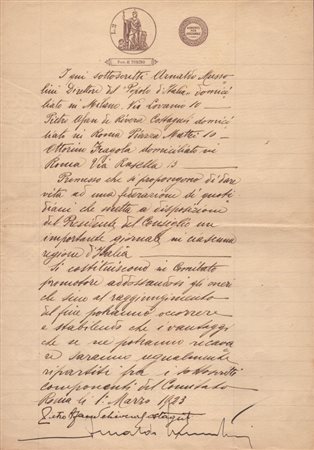 I qui sottoscritti Arnaldo Musso-
lini Direttore del "Popolo d'Italia" domici
liato in Milano Via Lovanio 10
Pietro Afan de Rivera Costaguti domici
liato in Roma Piazza Mattei 10 -
Ottorino Fragola domiciliato in
Roma Via Rasella 13
Premesso che si propongono di dar
vita ad una federazione di quoti
diani che metta a disposizione
del Presidente del Consiglio un
importante giornale in ciascuna
regione d'Italia
Si costituiscono in Comitato
promotore addossandosi gli oneri
che sino al raggiungimento
del fine potranno occorrere
e stabilendo che i vantaggi
che se ne potranno ricava
re saranno ugualmente
ripartiti fra i sottoscritti
componenti del Comitato
Roma li 1° Marzo 1923
Pietro Afan de Rivera Costaguti
Arnaldo Mussolini